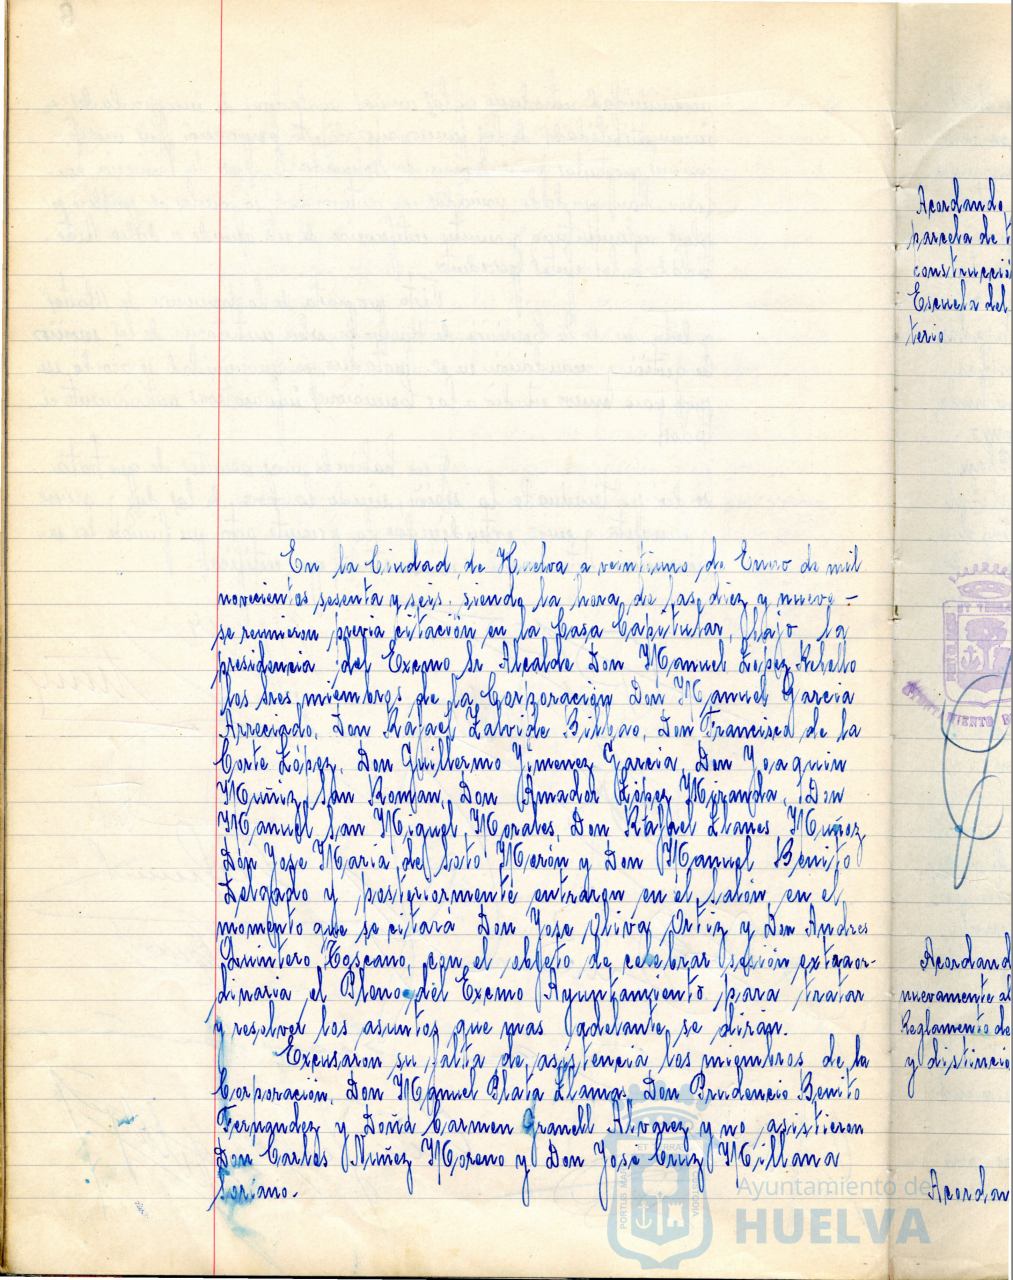 En la Ciudad de Huelva a veintiuno de Enero de mil
novecientos sesenta y seis, siendo la hora de las diez y nueve –
se reunieron previa citación en la Casa Capitular, bajo la
presidencia del Excmo Sr Alcalde Don Manuel López Rebollo
los sres miembros de la Corporación Don Manuel Garcia
Arreciado, Don Rafael Zalvide Bilbao, Don Francisco de la
Corte López, Don Guillermo Jimenez Garcia, Don Joaquin
Muñiz San Roman, Don Amador López Miranda, Don
Manuel San Miguel Morales, Don Rafael Llanes Muñoz
Don Jose Maria de Soto Merón y Don Manuel Benito
Delgado y posteriormente entraron en el salón, en el
momento que se citará Don Jose Oliva Ortiz y Don Andres
Quintero Toscano, con el objeto de celebrar sesión extraor-
dinaria el Pleno del Excmo Ayuntamiento para tratar
y resolver los asuntos que mas adelante se dirán.
Excusaron su falta de asistencia los miembros de la
Corporación, Don Manuel Plata Llamas, Don Prudencio Benito
Fernandez y Doña Carmen Granell Alvarez y no asistieron
Don Carlos Nuñez Moreno y Don Jose Cruz Millana
Soriano.-
Acordando
parcela de
construcció
Escuela del
terio
Acordand
nuevamente al
Reglamento de
y distincio
Acordan
Ayuntamiento de
HUELVA